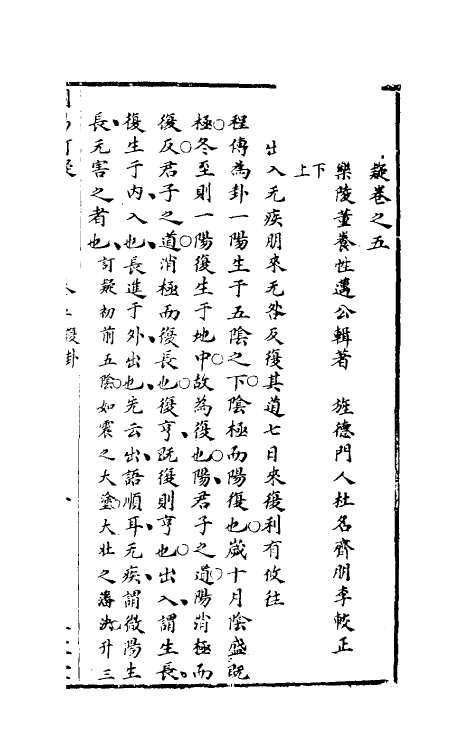 疑卷之五
樂陵董養性邁公輯著　旌德門人杜名齊朋李較正
下
上
出入无疾朋來无咎反復其道七日來復利有攸往
程傳為卦一陽生于五陰之下陰極而陽復也歲十月陰盛既
極冬至則一陽復生于地中故為復也陽君子之道陽消極而
復反君子之道消極而復長也復亨既復則亨也出入謂生長
復生于内入也長進于外出也先云出語順耳无疾謂微陽生
長无害之者也訂疑初前五陰如震之大塗大壯之藩決升三
周易訂疑　卷之五復卦　一